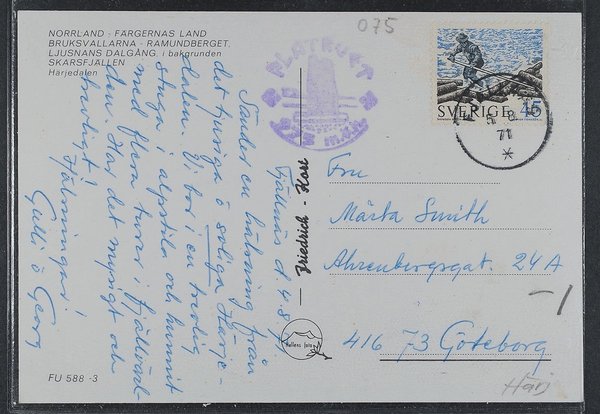 NORRLAND - FÄRGERNAS LAND
BRUKSVALLARNA - RAMUNDBERGET,
LJUSNANS DALGÅNG, i bakgrunden
SKARSFJÄLLEN
Härjedalen
075
PLATRUET
975 m.ö.h.
SVERIGE 45
5 8
71
Fjällnäs d. 4.8.71
Sänder en hälsning från
det tjusiga o soliga Härje-
dalen. Vi bor i en trevlig
stuga i alpstila och hunnit
med flera turer i fjällvärl-
den. Har det mysigt och
härligt!
Hjälsningar!
Gulli o Georg
Friedrich-Kort
Hallens foto
Fru
Märta Smith
Ahrenbergsgat. 24A
416 73 Göteborg
-1
Härj
FU 588-3